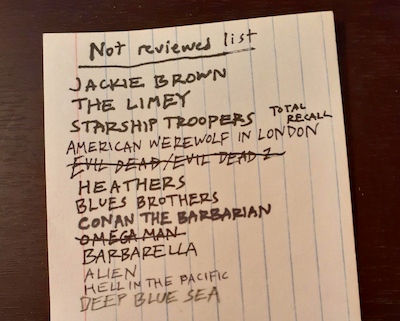 Not reviewed list
JACKIE BROWN
THE LIMEY
STARSHIP TROOPERS
TOTAL RECALL
AMERICAN WEREWOLF IN LONDON
EVIL DEAD/EVIL DEAD 2
HEATHERS
BLUES BROTHERS
CONAN THE BARBARIAN
OMEGA MAN
BARBARELLA
ALIEN
HELL IN THE PACIFIC
DEEP BLUE SEA